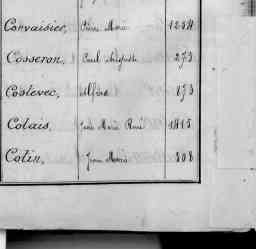 Corvaisier, Pierre Marie 1234
Cosseron, Paul Auguste 273
Costevec, Alfred 173
Cotais, Jean Marie René 1415
Cotin, Jean Marie 308